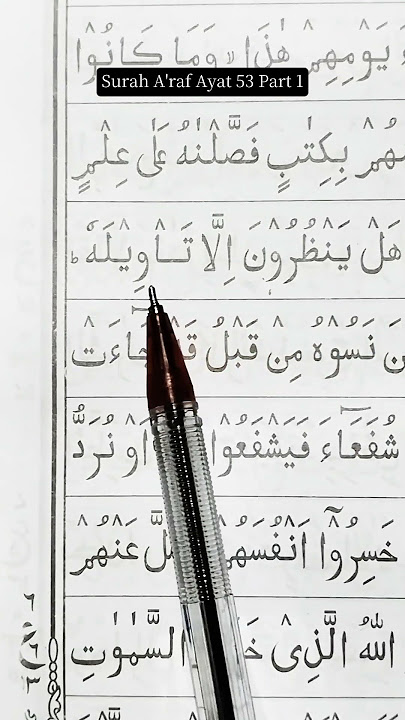 يَوْمِهِمْ هٰذَا ۙ وَمَا كَانُوْا
Surah A'raf Ayat 53 Part 1
بِكِتٰبٍ فَصَّلْنٰهُ عَلٰى عِلْمٍ
هَلْ يَنْظُرُوْنَ اِلَّا تَاْوِيْلَهٗ ؕ
نَسُوْهُ مِنْ قَبْلُ جَآءَتْ
شُفَعَآءَ فَيَشْفَعُوْا اَوْ نُرَدُّ
خَسِرُوْۤا اَنْفُسَهُمْ عَنْهُمْ
اللّٰهُ الَّذِىْ السَّمٰوٰتِ